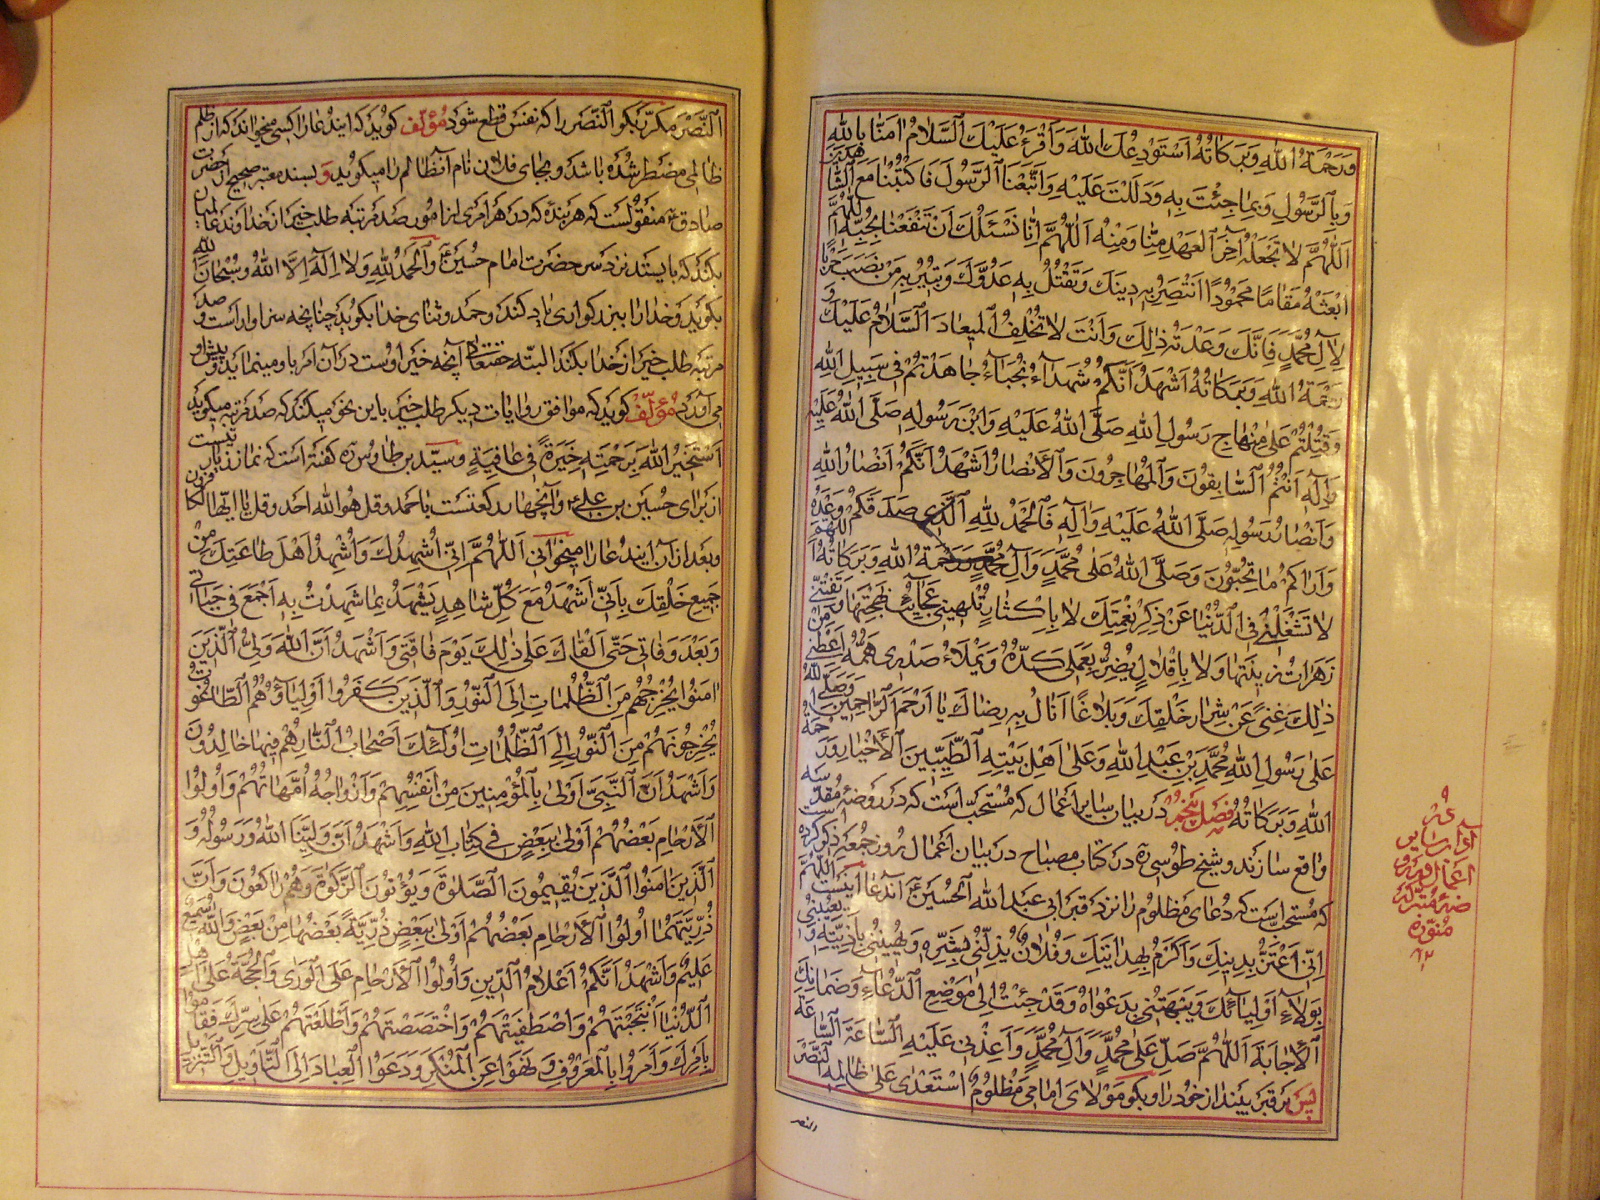 وَرَحْمَةُ اللهِ وَبَرَكَاتُهُ اَسْتَوْدِعُكَ اللهَ وَاَقْرَءُ عَلَيْكَ السَّلَامَ امَنَّا بِاللهِ
وَبِالرَّسُولِ وَبِمَا جِئْتَ بِهِ وَدَلَلْتَ عَلَيْهِ وَاتَّبَعْنَا الرَّسُولَ فَاكْتُبْنَا مَعَ الشَّاهِدِينَ
اَللّٰهُمَّ لَا تَجْعَلْهُ اخِرَ الْعَهْدِ مِنَّا وَمِنْهُ اَللّٰهُمَّ اِنَّا نَسْئَلُكَ اَنْ تَنْفَعَنَا بِحُبِّهِ اَللّٰهُمَّ
ابْعَثْهُ مَقَامًا مَحْمُودًا تَنْتَصِرُ بِهِ دِينَكَ وَتَقْتُلُ بِهِ عَدُوَّكَ وَتُبِيرُ بِهِ مَنْ نَصَبَ حَرْبًا
لِآلِ مُحَمَّدٍ فَاِنَّكَ وَعَدْتَهُ ذٰلِكَ وَاَنْتَ لَا تُخْلِفُ الْمِيعَادَ اَلسَّلَامُ عَلَيْكَ وَ
رَحْمَةُ اللهِ وَبَرَكَاتُهُ اَشْهَدُ اَنَّكُمْ شُهَدَآءُ نُجَبَآءُ جَاهَدْتُمْ فِي سَبِيلِ اللهِ
وَقُتِلْتُمْ عَلٰى مِنْهَاجِ رَسُولِ اللهِ صَلَّى اللهُ عَلَيْهِ وَابْنِ رَسُولِهِ صَلَّى اللهُ عَلَيْهِ
وَالِهِ اَنْتُمُ السَّابِقُونَ وَالْمُهَاجِرُونَ وَالْاَنْصَارُ اَشْهَدُ اَنَّكُمْ اَنْصَارُ اللهِ
وَاَنْصَارُ رَسُولِهِ صَلَّى اللهُ عَلَيْهِ وَآلِهِ فَالْحَمْدُ لِلّٰهِ الَّذِي صَدَقَكُمْ وَعْدَهُ
وَاَرَاكُمْ مَا تُحِبُّونَ وَصَلَّى اللهُ عَلٰى مُحَمَّدٍ وَآلِ مُحَمَّدٍ وَرَحْمَةُ اللهِ وَبَرَكَاتُهُ اَللّٰهُمَّ
لَا تَشْغَلْنِي فِي الدُّنْيَا عَنْ ذِكْرِ نِعْمَتِكَ لَا بِاِكْثَارٍ تُلْهِينِي عَجَآئِبُ بَهْجَتِهَا وَتَفْتِنُنِي
زَهَرَاتُ زِينَتِهَا وَلَا بِاِقْلَالٍ يُضِرُّ بِعَمَلِي كَدُّهُ وَيَمْلَاءُ صَدْرِي هَمُّهُ اَعْطِنِي مِنْ
ذٰلِكَ غِنًى عَنْ شِرَارِ خَلْقِكَ وَبَلَاغًا اَنَالُ بِهِ رِضَاكَ يَا اَرْحَمَ الرَّاحِمِينَ وَصَلَّى اللهُ
عَلٰى رَسُولِ اللهِ مُحَمَّدِ بْنِ عَبْدِ اللهِ وَعَلٰى اَهْلِ بَيْتِهِ الطَّيِّبِينَ الْاَخْيَارِ وَرَحْمَةُ
اللهِ وَبَرَكَاتُهُ فصل پنجم در بیان سایر اعمال که مستحب است که در روضه مقدسه
واقع سازند و شیخ طوسی ره در کتاب مصباح در بیان اعمال روز جمعه ذکر کرده است
که مستحب است که دعای مظلوم را نزد قبر ابی عبد الله الحسین ع آندعا اینست اَللّٰهُمَّ
اِنِّي اَعْتَزُّ بِدِينِكَ وَاَكْرُمُ بِهِدَايَتِكَ وَفُلَانٌ يُذِلُّنِي بِشَرِّهِ وَيُهِينُنِي بِاَذِيَّتِهِ وَيُعِيبُنِي
بِوَلَآءِ اَوْلِيَائِكَ وَيَبْهَتُنِي بِدَعْوَاهُ وَقَدْ جِئْتُ اِلٰى مَوْضِعِ الدُّعَآءِ وَضَمَانِكَ
الْاِجَابَةَ اَللّٰهُمَّ صَلِّ عَلٰى مُحَمَّدٍ وَآلِ مُحَمَّدٍ وَاَعْدِنِي عَلَيْهِ السَّاعَةَ السَّاعَةَ
پس بر قبر بیندازد خود را و بگو مَوْلَايَ اِمَامِي مَظْلُومٌ اسْتَعْدٰى عَلٰى ظَالِمِهِ اَلنَّصْرَ
والنصر
آداب سایر
اعمال
منوره
اَلنَّصْرَ مکرر بگو النصر را که نفس قطع شود مؤلف گوید که ایندعا را کسی میخواند که از ظلم
ظالمی مضطر شده باشد و بجای فلان نام آنظالم را میگوید و بسند معتبر صحیح از حضرت
صادق ع منقولست که هر بنده که در هر امری از امور صد مرتبه طلب خیر از خداوند عالمیان
بکند که بایستد نزد سر حضرت امام حسین ع وَالْحَمْدُ لِلّٰهِ وَلَا اِلٰهَ اِلَّا اللهُ وَسُبْحَانَ اللهِ
بگوید و خدا را ببزرگواری یاد کند و حمد و ثنای خدا بگوید چنانچه سزاوار اوست و صد
مرتبه طلب خیر از خدا بکند البته حقتعالی آنچه خیر اوست در آن امر باو مینماید و پیش او
می آورد مؤلف گوید که موافق روایات دیگر طلب خیر باین نحو میکند که صد مرتبه میگوید
اَسْتَخِيرُ اللهَ بِرَحْمَتِهِ خِيَرَةً فِي عَافِيَةٍ و سید بن طاوس ره گفته است که نماز زیارت
از برای حسین بن علی ع و آنچها رکعتست با حمد و قل هو الله احد و قل یا ایها الکافرون
و بعد از آن ایندعا را میخوانی اَللّٰهُمَّ اِنِّي اُشْهِدُكَ وَاُشْهِدُ اَهْلَ طَاعَتِكَ مِنْ
جَمِيعِ خَلْقِكَ بِاَنِّي اَشْهَدُ مَعَ كُلِّ شَاهِدٍ يَشْهَدُ بِمَا شَهِدْتُ بِهِ اَجْمَعَ فِي حَيَاتِي
وَبَعْدَ وَفَاتِي حَتّٰى اَلْقَاكَ عَلٰى ذٰلِكَ يَوْمَ فَاقَتِي وَاَشْهَدُ اَنَّ اللهَ وَلِيُّ الَّذِينَ
امَنُوا يُخْرِجُهُمْ مِنَ الظُّلُمَاتِ اِلَى النُّورِ وَالَّذِينَ كَفَرُوا اَوْلِيَآؤُهُمُ الطَّاغُوتُ
يُخْرِجُونَهُمْ مِنَ النُّورِ اِلَى الظُّلُمَاتِ اُولٰئِكَ اَصْحَابُ النَّارِ هُمْ فِيهَا خَالِدُونَ
وَاَشْهَدُ اَنَّ النَّبِيَّ اَوْلٰى بِالْمُؤْمِنِينَ مِنْ اَنْفُسِهِمْ وَاَزْوَاجُهُ اُمَّهَاتُهُمْ وَاُولُوا
الْاَرْحَامِ بَعْضُهُمْ اَوْلٰى بِبَعْضٍ فِي كِتَابِ اللهِ وَاَشْهَدُ اَنَّ وَلِيَّنَا اللهُ وَرَسُولُهُ وَ
الَّذِينَ امَنُوا الَّذِينَ يُقِيمُونَ الصَّلٰوةَ وَيُؤْتُونَ الزَّكٰوةَ وَهُمْ رَاكِعُونَ وَاَنَّ
ذُرِّيَّتَهُمَا اُولُوا الْاَرْحَامِ بَعْضُهُمْ اَوْلٰى بِبَعْضٍ ذُرِّيَّةً بَعْضُهَا مِنْ بَعْضٍ وَاللهُ سَمِيعٌ
عَلِيمٌ وَاَشْهَدُ اَنَّكُمْ اَعْلَامُ الدِّينِ وَاُولُوا الْاَرْحَامِ عَلَى الْوَرٰى وَالْحُجَّةُ عَلٰى اَهْلِ
الدُّنْيَا انْتَجَبْتَهُمْ وَاصْطَفَيْتَهُمْ وَاخْتَصَصْتَهُمْ وَاَطْلَعْتَهُمْ عَلٰى سِرِّكَ فَقَامُوا
بِاَمْرِكَ وَاَمَرُوا بِالْمَعْرُوفِ وَنَهَوْا عَنِ الْمُنْكَرِ وَدَعَوُا الْعِبَادَ اِلَى التَّاْوِيلِ وَالتَّنْزِيلِ